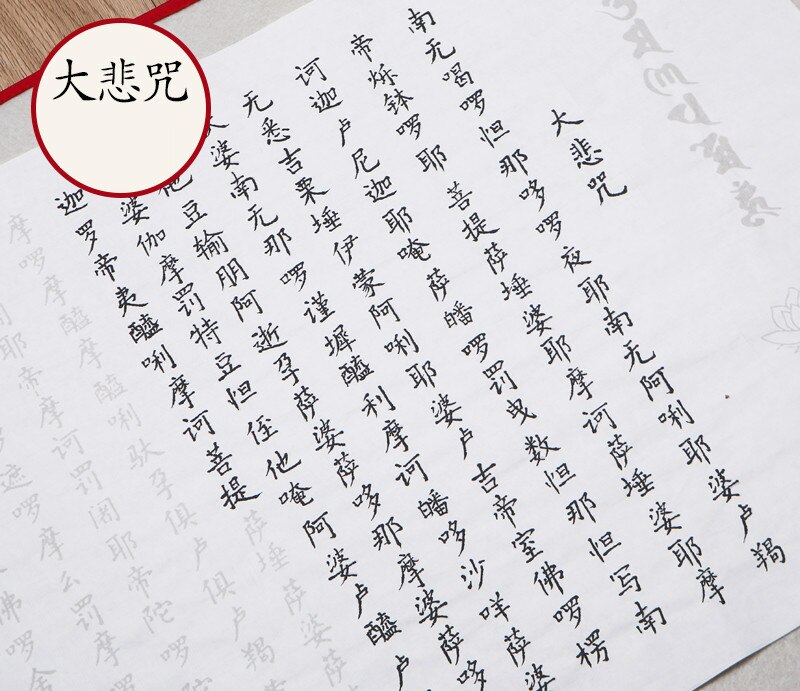 大悲咒
大悲咒
南无喝啰怛那哆啰夜耶南无阿唎耶婆卢羯
帝烁钵啰耶菩提萨埵婆耶摩诃萨埵婆耶摩
诃迦卢尼迦耶唵萨皤啰罚曳数怛那怛写南
无悉吉栗埵伊蒙阿唎耶婆卢吉帝室佛啰楞
婆南无那啰谨墀醯利摩诃皤哆沙咩萨婆
他豆输朋阿逝孕萨婆萨哆那摩婆萨哆
婆伽摩罚特豆怛侄他唵阿婆卢醯卢
迦罗帝夷醯唎摩诃菩提萨埵萨婆萨
摩啰摩醯摩醯唎驮孕俱卢俱卢羯
耶帝摩诃罚阇耶帝陀啰陀
遮啰摩么罚摩
佛啰舍